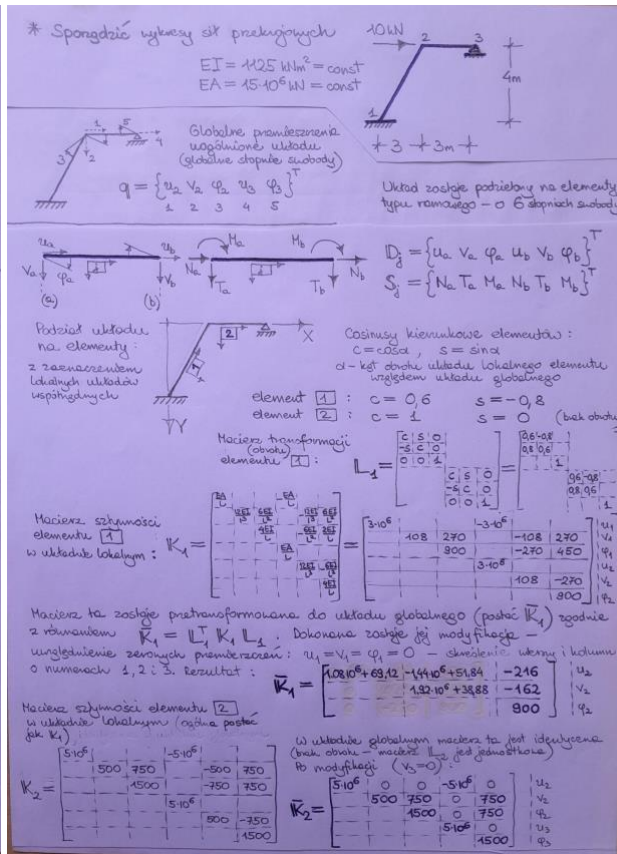 * Sporządzić wykresy sił przekrojowych
EI = 1125 kNm² = const
EA = 15·10⁶ kN = const
10 kN
2
3
1
4m
3
3m
Globalne przemieszczenia
uogólnione układu
(globalne stopnie swobody)
1
5
2
3
4
q = {u₂ v₂ φ₂ u₃ φ₃}ᵀ
1 2 3 4 5
Układ zostaje podzielony na elementy
typu ramowego – o 6 stopniach swobody
uₐ u_b Mₐ M_b
Vₐ φₐ 1 V_b Nₐ Tₐ 1 T_b N_b
(a) (b)
Dⱼ = {uₐ vₐ φₐ u_b v_b φ_b}ᵀ
Sⱼ = {Nₐ Tₐ Mₐ N_b T_b M_b}ᵀ
Podział układu
na elementy:
z zaznaczeniem
lokalnych układów
współrzędnych
2
X
1
Y
Cosinusy kierunkowe elementów:
c = cosα , s = sinα
α – kąt obrotu układu lokalnego elementu
względem układu globalnego
element 1 : c = 0,6 s = -0,8
element 2 : c = 1 s = 0 (brak obrotu)
Macierz transformacji
(obrotu)
elementu 1 :
L₁ =
c s 0
-s c 0
0 0 1
c s 0
-s c 0
0 0 1
=
0,6 -0,8
0,8 0,6
1
0,6 -0,8
0,8 0,6
1
Macierz sztywności
elementu 1
w układzie lokalnym :
K₁ =
EA/L -EA/L
12EI/L³ 6EI/L² -12EI/L³ 6EI/L²
4EI/L -6EI/L² 2EI/L
EA/L
12EI/L³ -6EI/L²
4EI/L
=
3·10⁶ -3·10⁶ u₁
108 270 -108 270 v₁
900 -270 450 φ₁
3·10⁶ u₂
108 -270 v₂
900 φ₂
Macierz ta zostaje przetransformowana do układu globalnego (postać K̄₁) zgodnie
z równaniem K̄₁ = L₁ᵀ K₁ L₁ ; Dokonana zostaje jej modyfikacja –
uwzględnienie zerowych przemieszczeń : u₁ = v₁ = φ₁ = 0 – skreślenie wierszy i kolumn
o numerach 1, 2 i 3. Rezultat :
K̄₁ =
1,08·10⁶+69,12 -1,44·10⁶+51,84 -216 u₂
1,92·10⁶+38,88 -162 v₂
900 φ₂
Macierz sztywności elementu 2
w układzie lokalnym (ogólna postać
jak K₁)
K₂ =
5·10⁶ -5·10⁶
500 750 -500 750
1500 -750 750
5·10⁶
500 -750
1500
W układzie globalnym macierz ta jest identyczna
(brak obrotu – macierz L₂ jest jednostkowa)
Po modyfikacji (v₃=0) :
K̄₂ =
5·10⁶ 0 0 -5·10⁶ 0 u₂
500 750 0 750 v₂
1500 0 750 φ₂
5·10⁶ 0 u₃
1500 φ₃